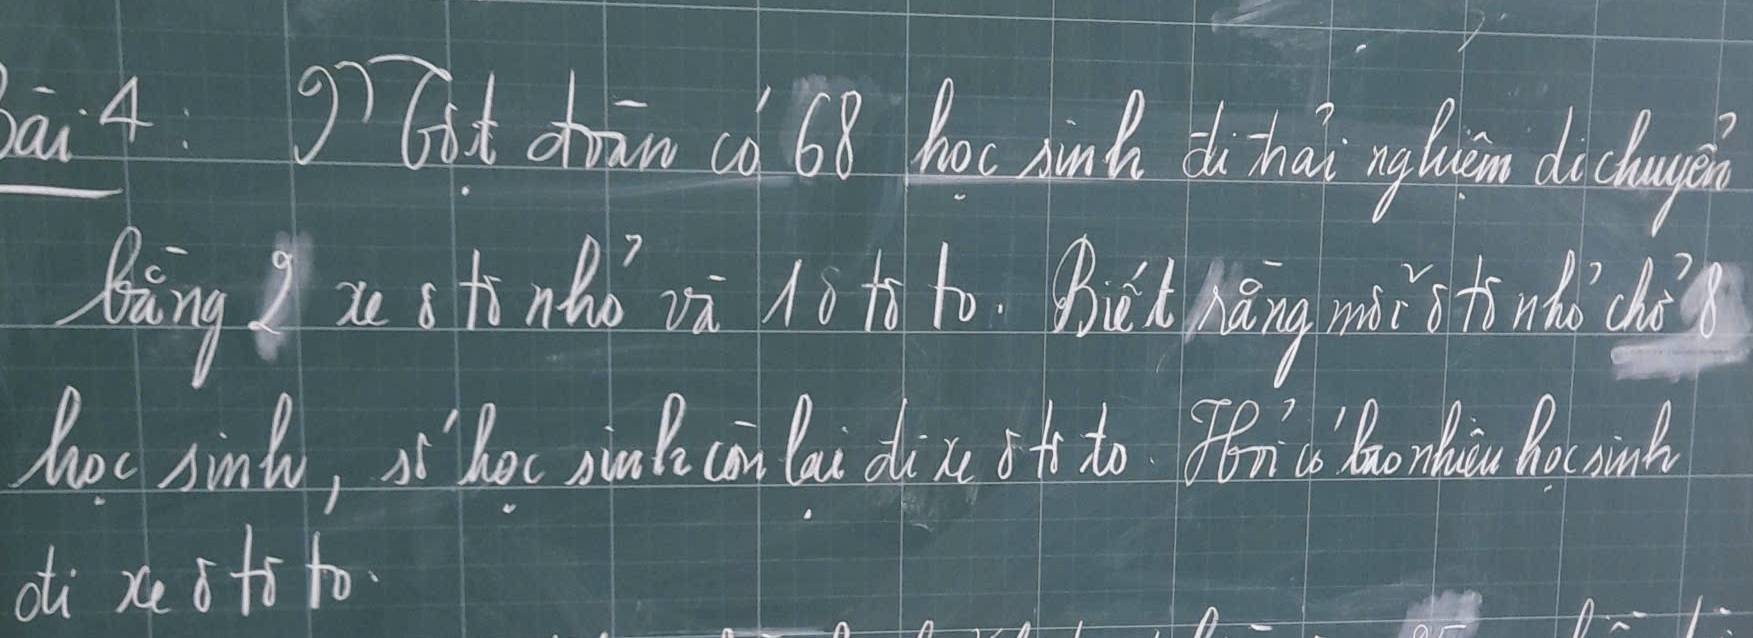 Bài 4: Một đoàn có 68 học sinh đi trải nghiệm di chuyển
bằng 2 xe ô tô nhỏ và 1 ô tô to. Biết rằng mỗi ô tô nhỏ chở 8
học sinh, số học sinh còn lại đi xe ô tô to. Hỏi có bao nhiêu học sinh
đi xe ô tô to.